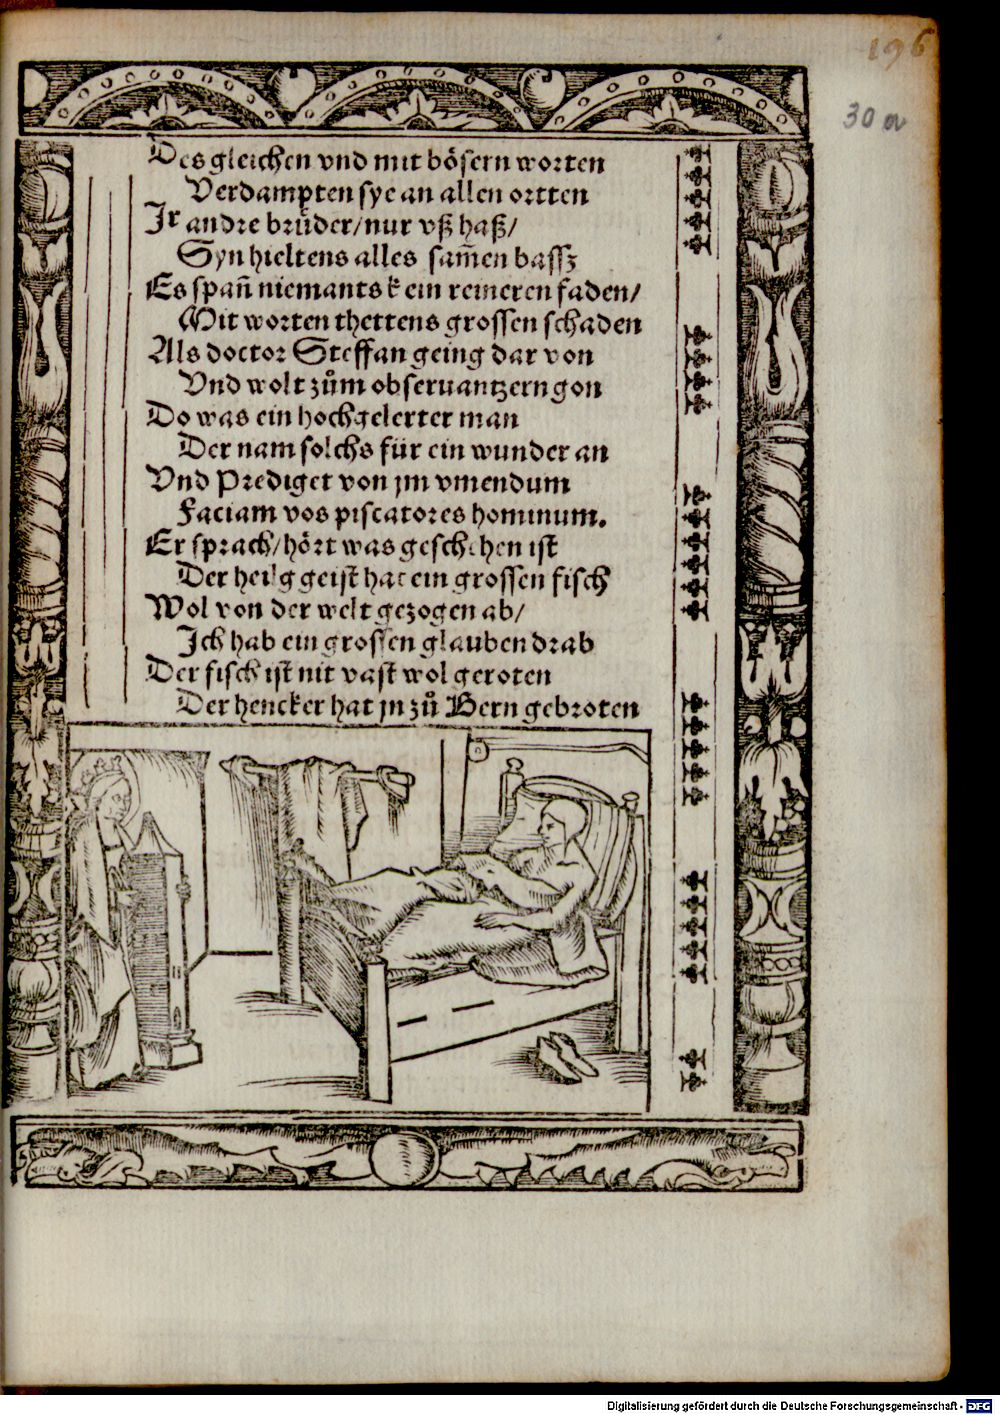 196
30 a
Des gleichen vnd mit bösern worten
Verdampten sye an allen ortten
Jr andre brůder/ nur vß haß/
Syn hieltens alles sam̃en bassz
Es span̄ niemants kein reineren faden/
Mit worten thettens grossen schaden
Als doctor Steffan geing dar von
Vnd wolt zům obseruantzern gon
Do was ein hochgelerter man
Der nam solchs für ein wunder an
Vnd Prediget von jm vmendum
Faciam vos piscatores hominum.
Er sprach/ hört was geschehen ist
Der heilg geist hat ein grossen fisch
Wol von der welt gezogen ab/
Jch hab ein grossen glauben drab
Der fisch ist nit vast wol geroten
Der hencker hat jn zů Bern gebroten
Digitalisierung gefördert durch die Deutsche Forschungsgemeinschaft - DFG